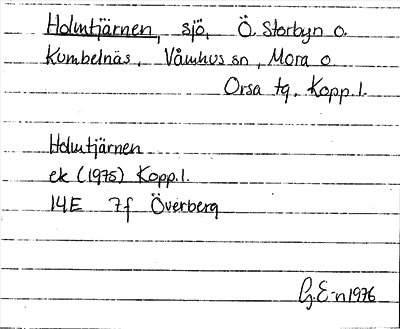 Holmtjärnen, sjö, Ö. Storbyn o.
Kumbelnäs, Våmhus sn, Mora o
Orsa tg. Kopp.l.
Holmtjärnen
ek (1975) Kopp.l.
14E 7f Överberg
G.E-n 1976